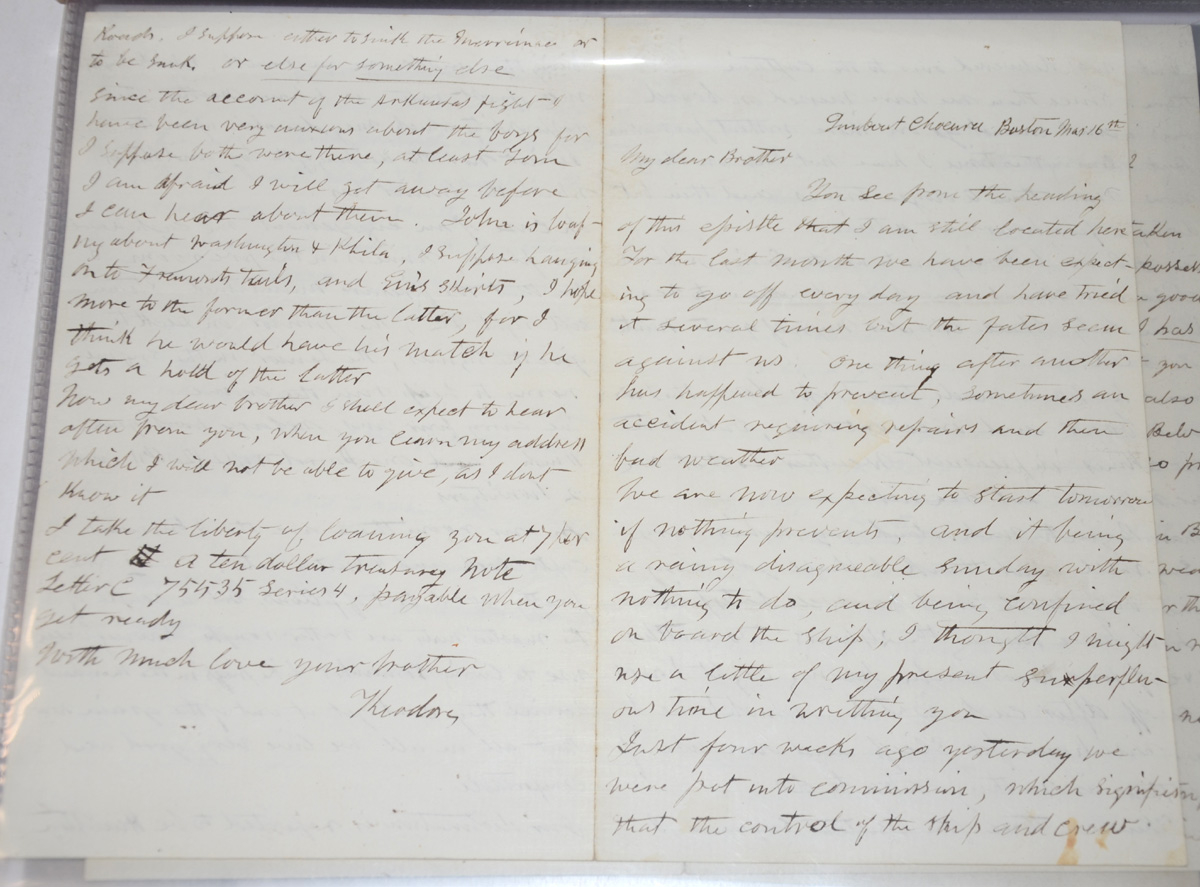 Roads. I suppose either to sink the Merrimac or
to be sunk, or else for something else
Since the account of the Arkansas fight I
have been very anxious about the boys for
I suppose both were there, at least Tom
I am afraid I will get away before
I can hear about them. John is loaf-
ing about Washington & Phila, I suppose hanging
on to Fremonts tails, and skirts, I hope
more to the former than the latter, for I
think he would have his match if he
gets a hold of the latter
Now my dear brother I shall expect to hear
often from you, when you learn my address
which I will not be able to give, as I dont
know it
I take the liberty of loaning you at 7 per
cent a ten dollar treasury note
Letter C 75535 Series 4, payable when you
get ready
With much love your brother
Theodore
Gunboat Chocura Boston Mar 16th
My dear Brother
You see from the heading
of this epistle that I am still located here
For the last month we have been expect-
ing to go off every day and have tried
it several times but the fates seem
against us. One thing after another
has happened to prevent, sometimes an
accident requiring repairs and then
bad weather
We are now expecting to start tomorrow
if nothing prevents, and it being
a rainy disagreeable Sunday with
nothing to do, and being confined
on board the ship, I thought I might
use a little of my present superflu-
ous time in writting you
Just four weeks ago yesterday we
were put into commission, which signifies,
that the control of the ship and crew
taken
possess
a good
I has
you
also